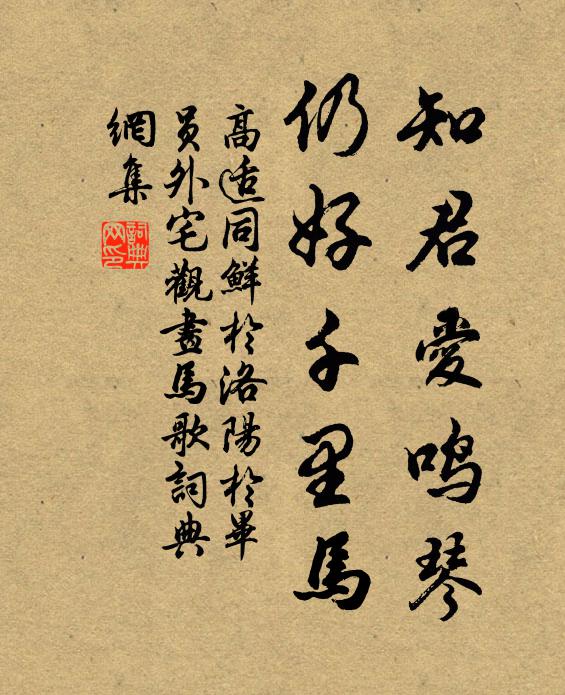 知君愛鳴琴
仍好千里馬
高适同鮮於洛陽於畢
員外宅觀畫馬歌詞典
網集
詞典
网印